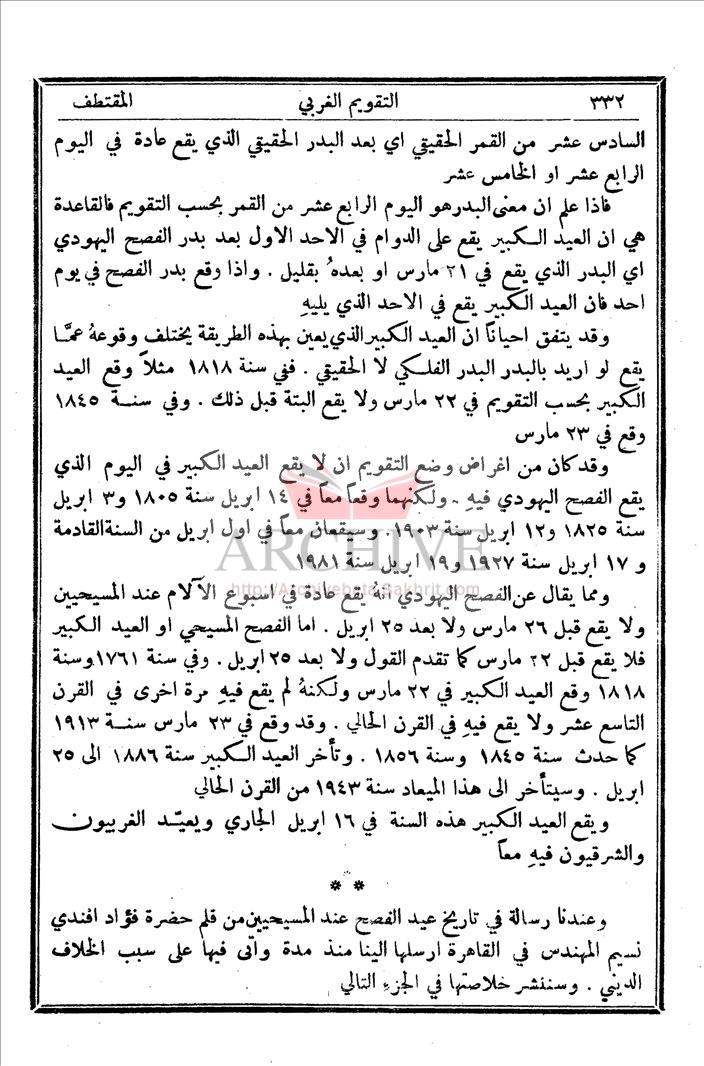 ٣٣٢ التقويم الغربي المقتطف
السادس عشر من القمر الحقيقي اي بعد البدر الحقيقي الذي يقع عادة في اليوم
الرابع عشر او الخامس عشر
فاذا علم ان معنى البدر هو اليوم الرابع عشر من القمر بحسب التقويم فالقاعدة
هي ان العيد الكبير يقع على الدوام في الاحد الاول بعد بدر الفصح اليهودي
اي البدر الذي يقع في ٢١ مارس او بعدهُ بقليل . واذا وقع بدر الفصح في يوم
احد فان العيد الكبير يقع في الاحد الذي يليهِ
وقد يتفق احياناً ان العيد الكبير الذي يعين بهذه الطريقة يختلف وقوعهُ عمَّا
يقع لو اريد بالبدر البدر الفلكي لا الحقيقي . ففي سنة ١٨١٨ مثلاً وقع العيد
الكبير بحسب التقويم في ٢٢ مارس ولا يقع البتة قبل ذلك . وفي سنة ١٨٤٥
وقع في ٢٣ مارس
وقد كان من اغراض وضع التقويم ان لا يقع العيد الكبير في اليوم الذي
يقع الفصح اليهودي فيهِ . ولكنهما وقعا معاً في ١٤ ابريل سنة ١٨٠٥ و٣ ابريل
سنة ١٨٢٥ و١٢ ابريل سنة ١٩٠٣. وسيقعان معاً في اول ابريل من السنة القادمة
و ١٧ ابريل سنة ١٩٢٧ و١٩ ابريل سنة ١٩٨١
ARCHIVE
http://Archivebeta.Sakhrit.com
ومما يقال عن الفصح اليهودي انهُ يقع عادة في اسبوع الآلام عند المسيحيين
ولا يقع قبل ٢٦ مارس ولا بعد ٢٥ ابريل . اما الفصح المسيحي او العيد الكبير
فلا يقع قبل ٢٢ مارس كما تقدم القول ولا بعد ٢٥ ابريل . وفي سنة ١٧٦١ وسنة
١٨١٨ وقع العيد الكبير في ٢٢ مارس ولكنهُ لم يقع فيهِ مرة اخرى في القرن
التاسع عشر ولا يقع فيهِ في القرن الحالي . وقد وقع في ٢٣ مارس سنة ١٩١٣
كما حدث سنة ١٨٤٥ وسنة ١٨٥٦ . وتأخر العيد الكبير سنة ١٨٨٦ الى ٢٥
ابريل . وسيتأخر الى هذا الميعاد سنة ١٩٤٣ من القرن الحالي
ويقع العيد الكبير هذه السنة في ١٦ ابريل الجاري ويعيّد الغربيون
والشرقيون فيهِ معاً
* * *
وعندنا رسالة في تاريخ عيد الفصح عند المسيحيين من قلم حضرة فؤاد افندي
نسيم المهندس في القاهرة ارسلها الينا منذ مدة واتى فيها على سبب الخلاف
الديني . وسننشر خلاصتها في الجزءِ التالي